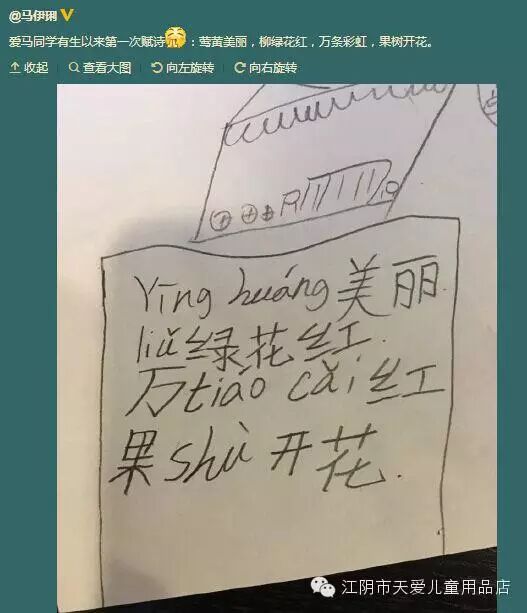 @马伊琍
爱马同学有生以来第一次赋诗:莺黄美丽,柳绿花红,万条彩虹,果树开花。
收起 查看大图 向左旋转 向右旋转
Yīng huáng 美丽
liǔ 绿花红.
万 tiáo cǎi 红
果 shù 开花.
江阴市天爱儿童用品店